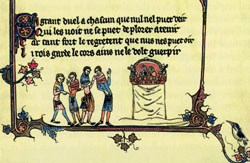 grant duel a chascun que nul nel puet veir
Qui les voit ne se puet de plorer atenir
at tant fort le regretent que nus nes puet oir
rois garde le cors ains ne le volt guerpir